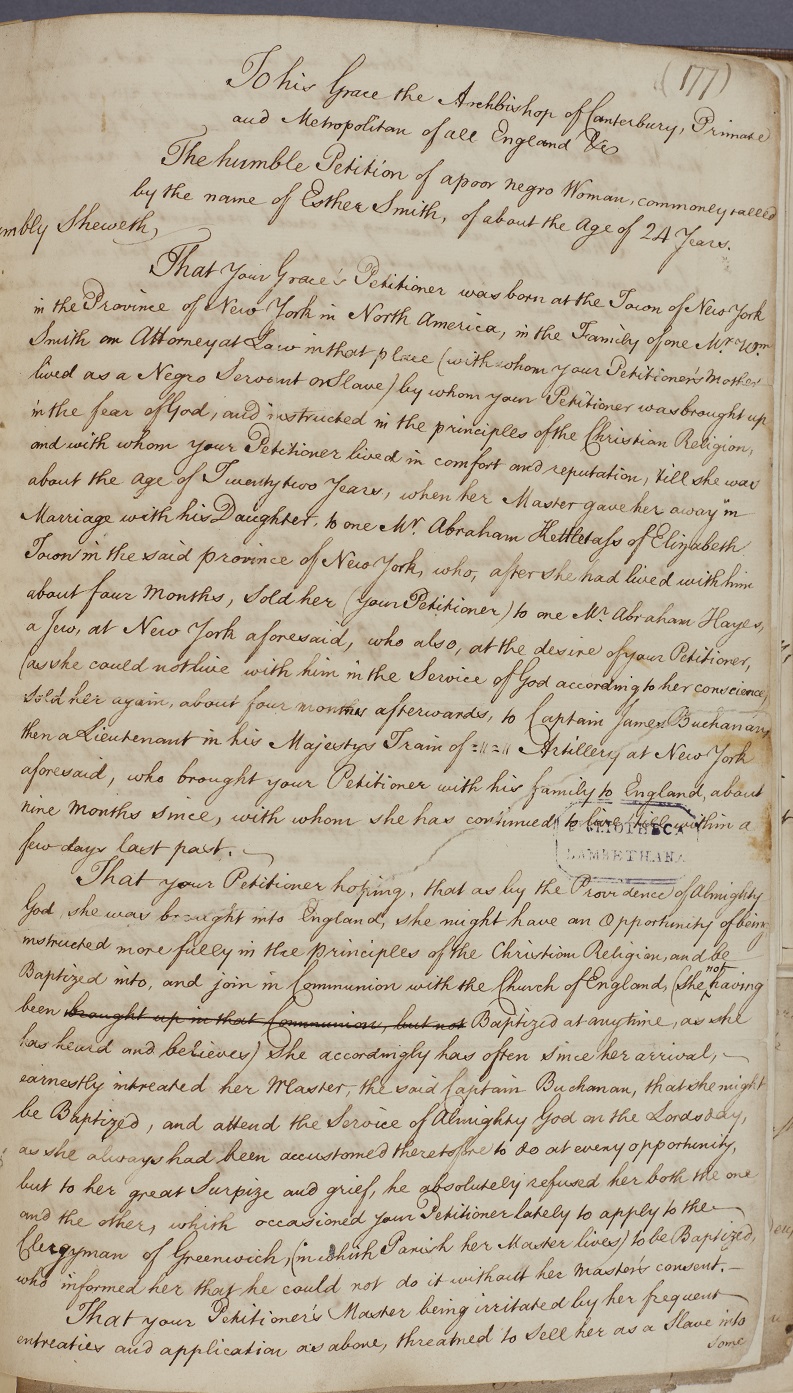 (177)
To his Grace the Archbishop of Canterbury, Primate
and Metropolitan of all England &c
The humble Petition of a poor negro Woman, commonly called
by the name of Esther Smith, of about the Age of 24 Years.
mbly Sheweth,
That Your Grace's Petitioner was born at the Town of New York
in the Province of New York in North America, in the Family of one Mr. Wm.
Smith an Attorney at Law in that place (with whom your Petitioner's Mother
lived as a Negro Servant or Slave) by whom your Petitioner was brought up
in the fear of God, and instructed in the principles of the Christian Religion,
and with whom your Petitioner lived in comfort and reputation, till she was
about the age of Twenty two Years, when her Master gave her away in
Marriage with his Daughter, to one Mr. Abraham Kettletass of Elizabeth
Town in the said province of New York, who, after she had lived with him
about four Months, Sold her (your Petitioner) to one Mr. Abraham Hayes,
a Jew, at New York aforesaid, who also, at the desire of your Petitioner,
(as she could not live with him in the Service of God according to her conscience)
sold her again, about four months afterwards, to Captain James Buchanan,
then a Lieutenant in his Majestys Train of =〃=〃 Artillery at New York
aforesaid, who brought your Petitioner with his family to England, about
nine Months since, with whom she has continued to live till within a
few days last past.
BIBLIOTHECA
LAMBETHANA
That your Petitioner hoping, that as by the Providence of Almighty
God, she was brought into England, she might have an Opportunity of being
instructed more fully in the principles of the Christian Religion, and be
Baptized into, and join in Communion with the Church of England, (she not having
been brought up in that Communion, but not Baptized at anytime, as she
has heard and believes) She accordingly has often since her arrival,
earnestly intreated her Master, the said Captain Buchanan, that she might
be Baptized, and attend the Service of Almighty God on the Lords day,
as she always had been accustomed theretofore to do at every opportunity,
but to her great Surpize and grief, he absolutely refused her both the one
and the other, which occasioned your Petitioner lately to apply to the
Clergyman of Greenwich, (in which Parish her Master lives) to be Baptized,
who informed her that he could not do it without her Master's consent.
That your Petitioner's Master being irritated by her frequent
entreaties and application as above, threatned to Sell her as a Slave into
some